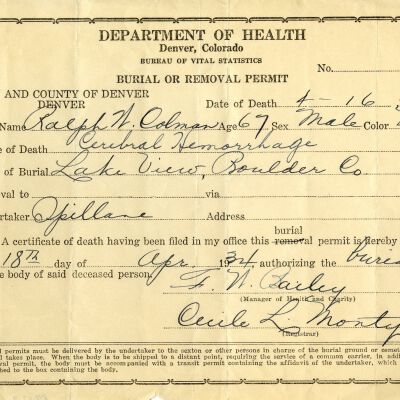 DEPARTMENT OF HEALTH
Denver, Colorado
BUREAU OF VITAL STATISTICS
BURIAL OR REMOVAL PERMIT
No.
AND COUNTY OF DENVER
DENVER
Date of Death 4-16
Name Ralph W. Colman Age 67 Sex Male Color
e of Death Cerebral Hemorrhage
of Burial Lake View, Boulder Co
val to via
rtaker Spillane Address
burial
A certificate of death having been filed in my office this removal permit is hereby
18th day of Apr. 1934 authorizing the buria
he body of said deceased person.
F. W.
(Manager of Health and Charity)
Cecile L. Monty
(Registrar)
l permits must be delivered by the undertaker to the sexton or other persons in charge of the burial ground or cemet
l takes place. When the body is to be shipped to a distant point, requiring the service of a common carrier, in addi
val permit, the body must be accompanied with a transit permit containing the affidavit of the undertaker, which
hed to the box containing the body.